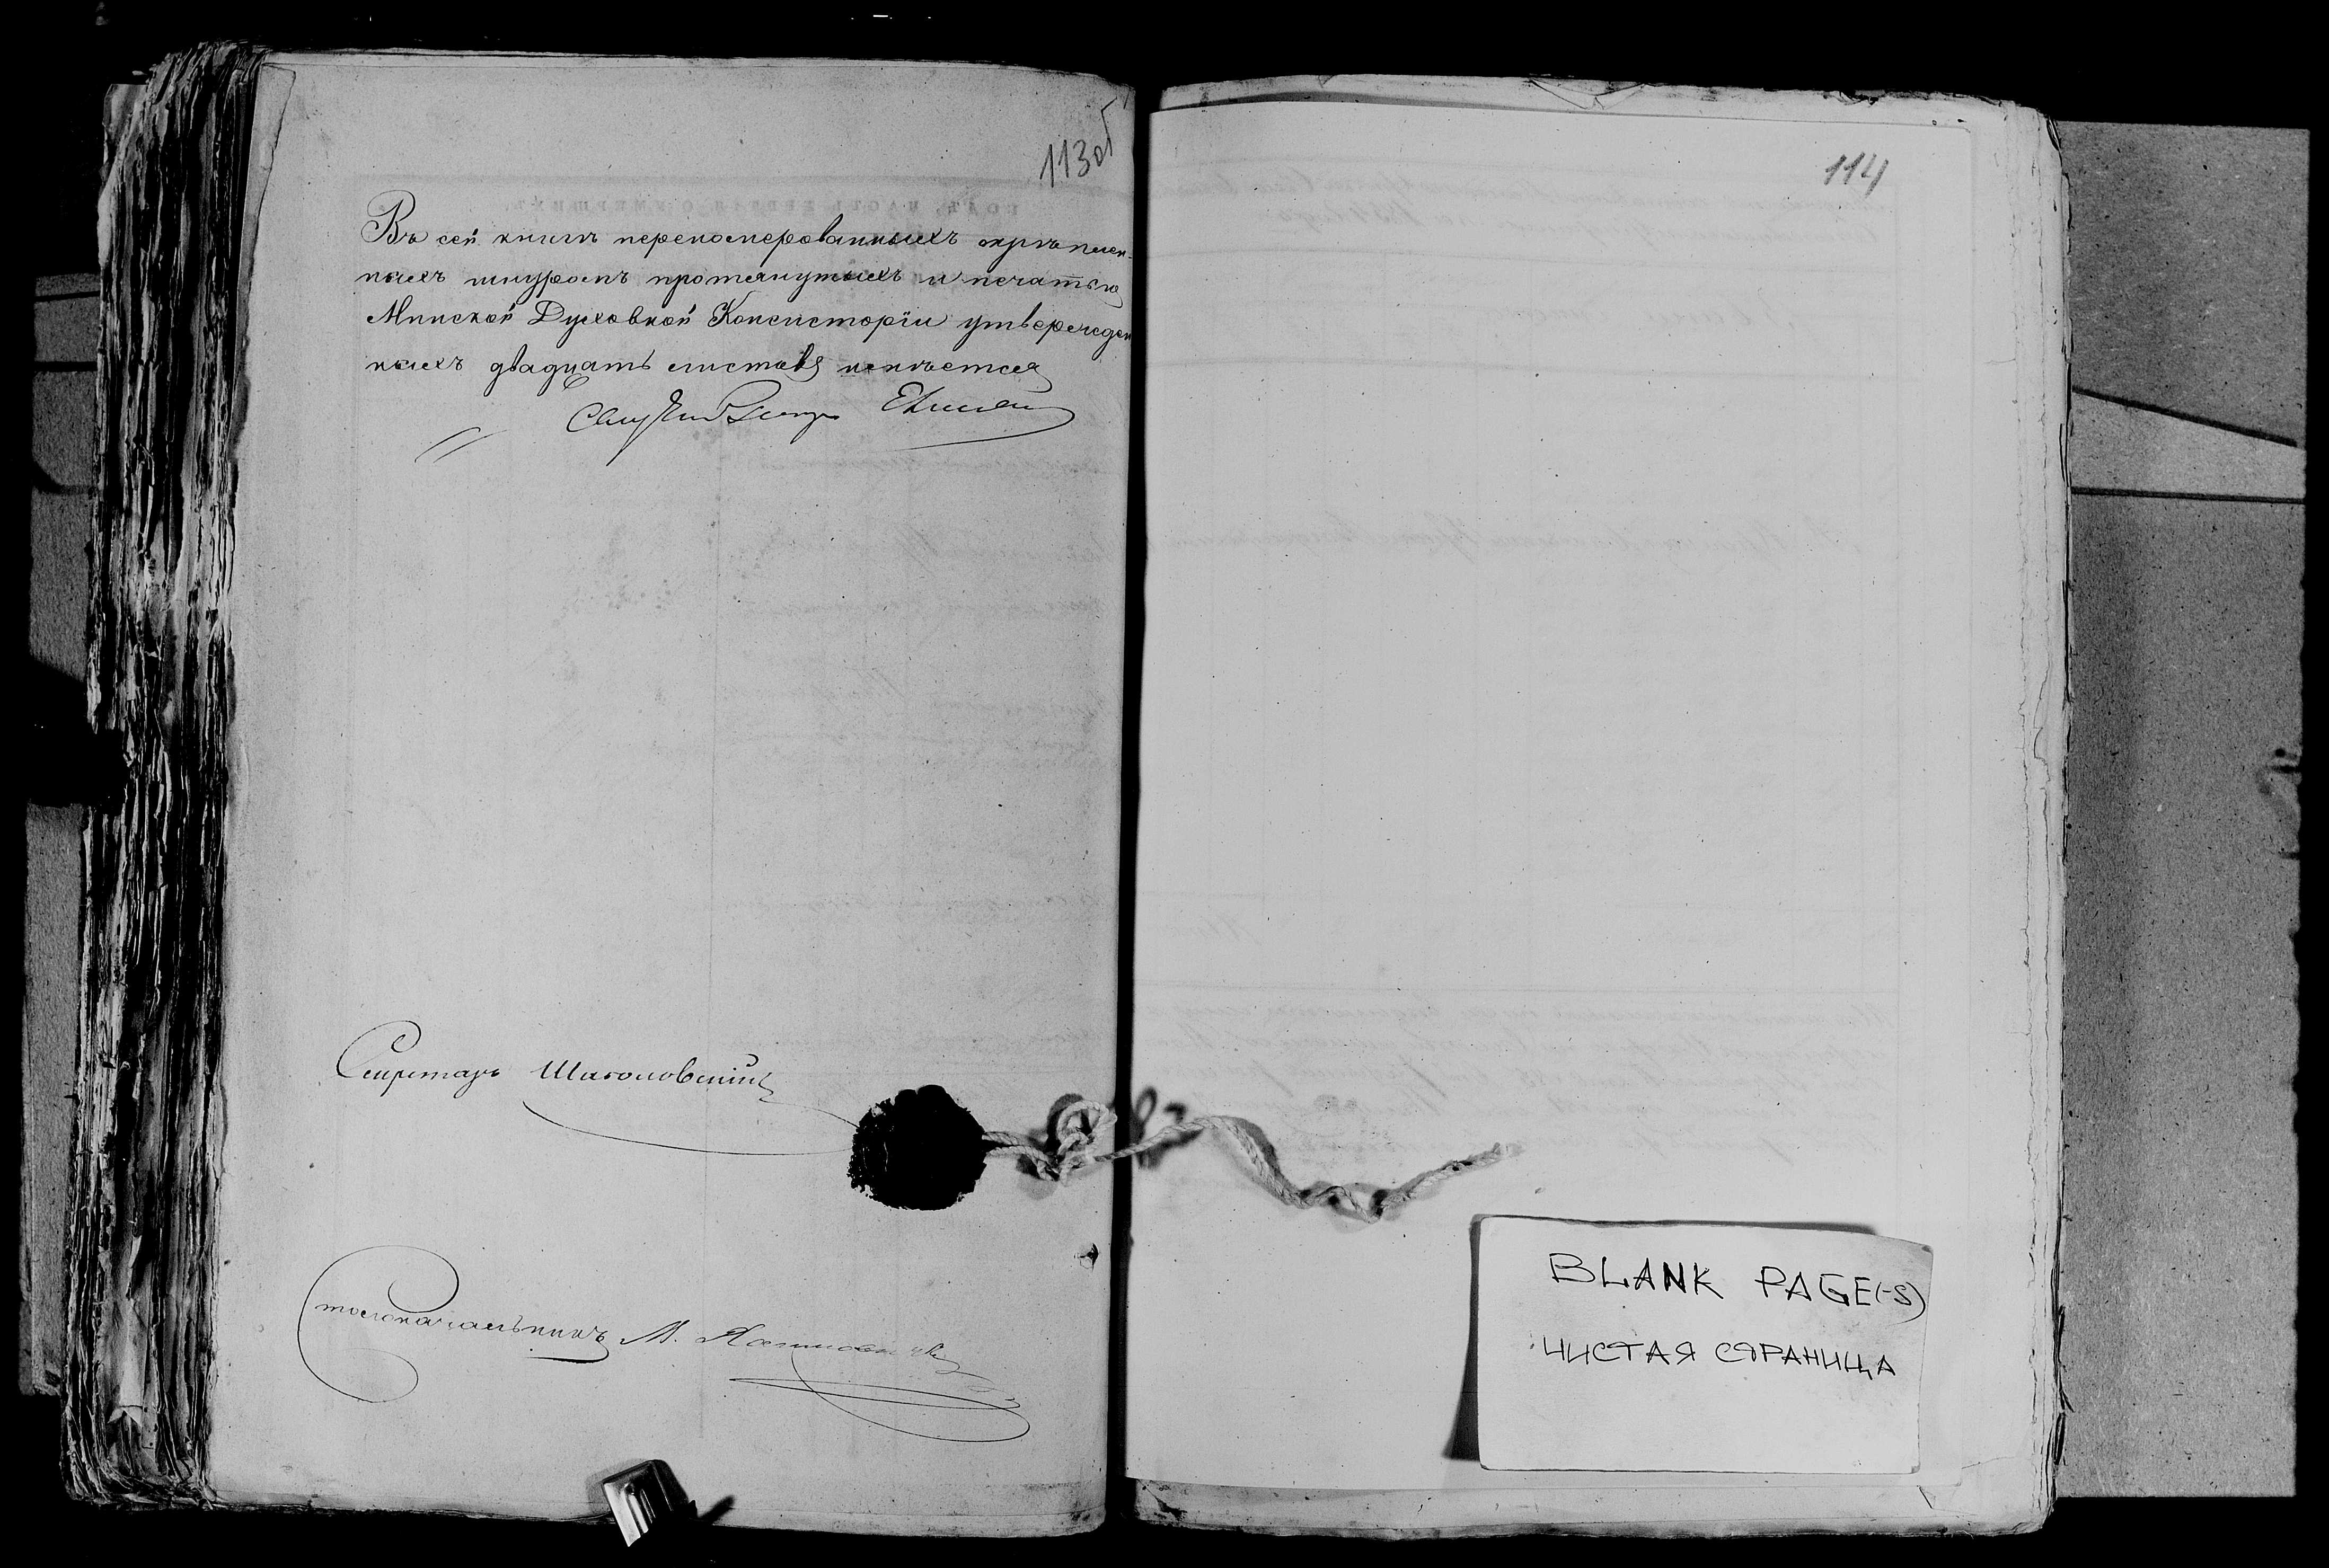 113 об
Въ сей книгѣ переномерованныхъ скрѣплен-
ныхъ шнуромъ протянутыхъ и печатью
Минской Духовной Консисторіи утвержден
ныхъ двадцать листовъ имѣется
Секретарь
Столоначальникъ М.
114
BLANK PAGE(-S)
ЧИСТАЯ СТРАНИЦА